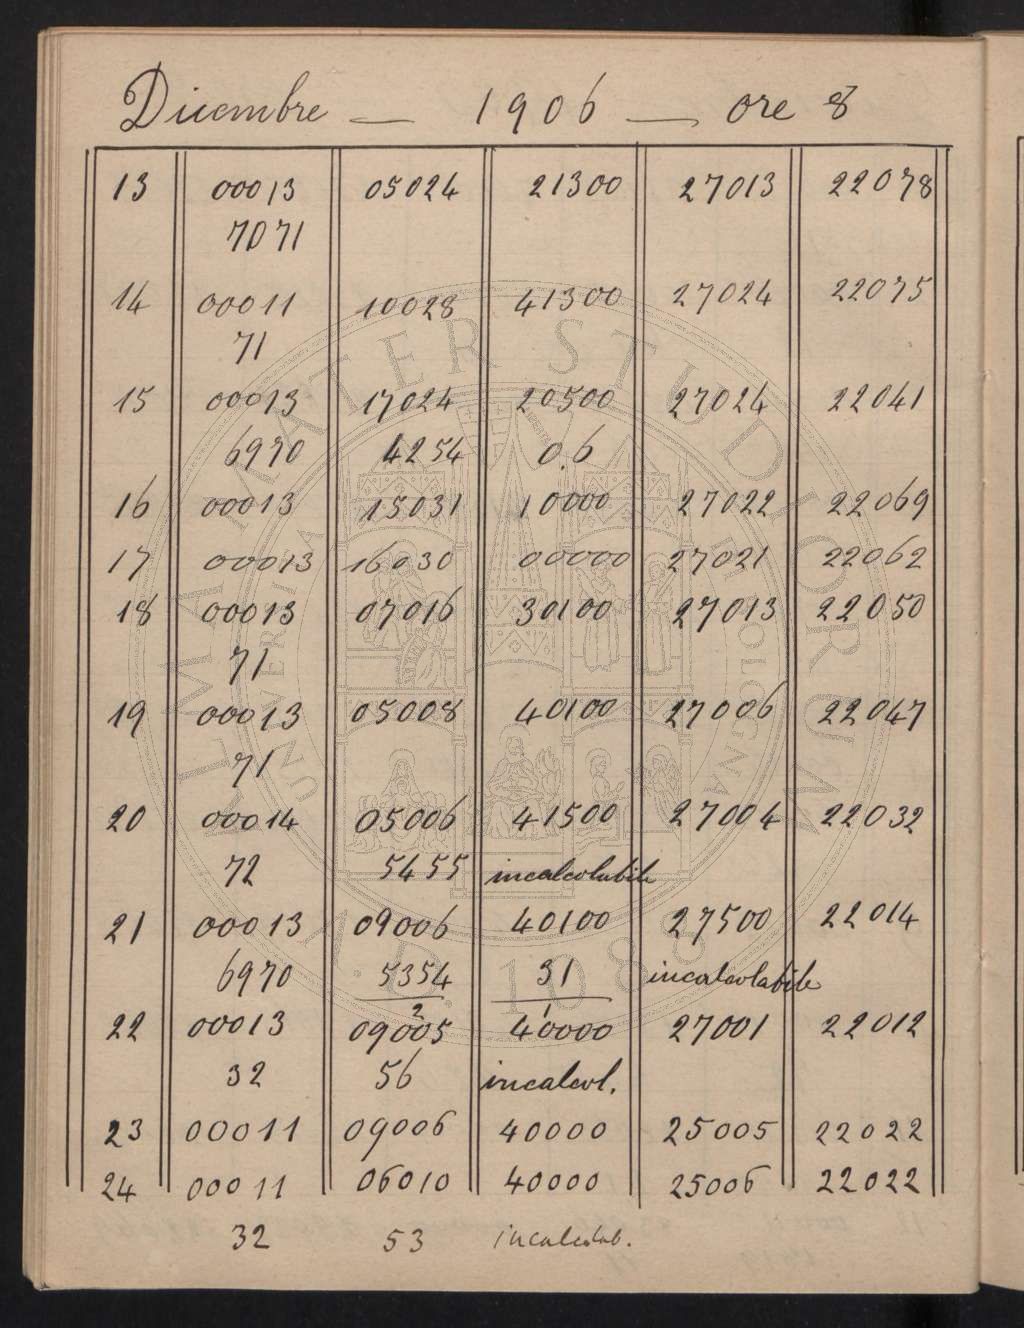 Dicembre — 1906 — ore 8
13 00013 05024 21300 27013 22078
7071
14 00011 10028 41300 27024 22075
71
15 00013 17024 20500 27024 22041
6970 4254 0.6
16 00013 15031 10000 27022 22069
17 00013 16030 00000 27021 22062
18 00013 07016 30100 27013 22050
71
19 00013 05008 40100 27006 22047
71
20 00014 05006 41500 27004 22032
72 5455 incalcolabile
21 00013 09006 40100 27500 22014
6970 5354 31 incalcolabile
2 1
22 00013 09005 40000 27001 22012
32 56 incalcol.
23 00011 09006 40000 25005 22022
24 00011 06010 40000 25006 22022
32 53 incalcolab.
ALMA MATER STUDIORUM
UNIVERSITÀ DI BOLOGNA
A.D. 1088